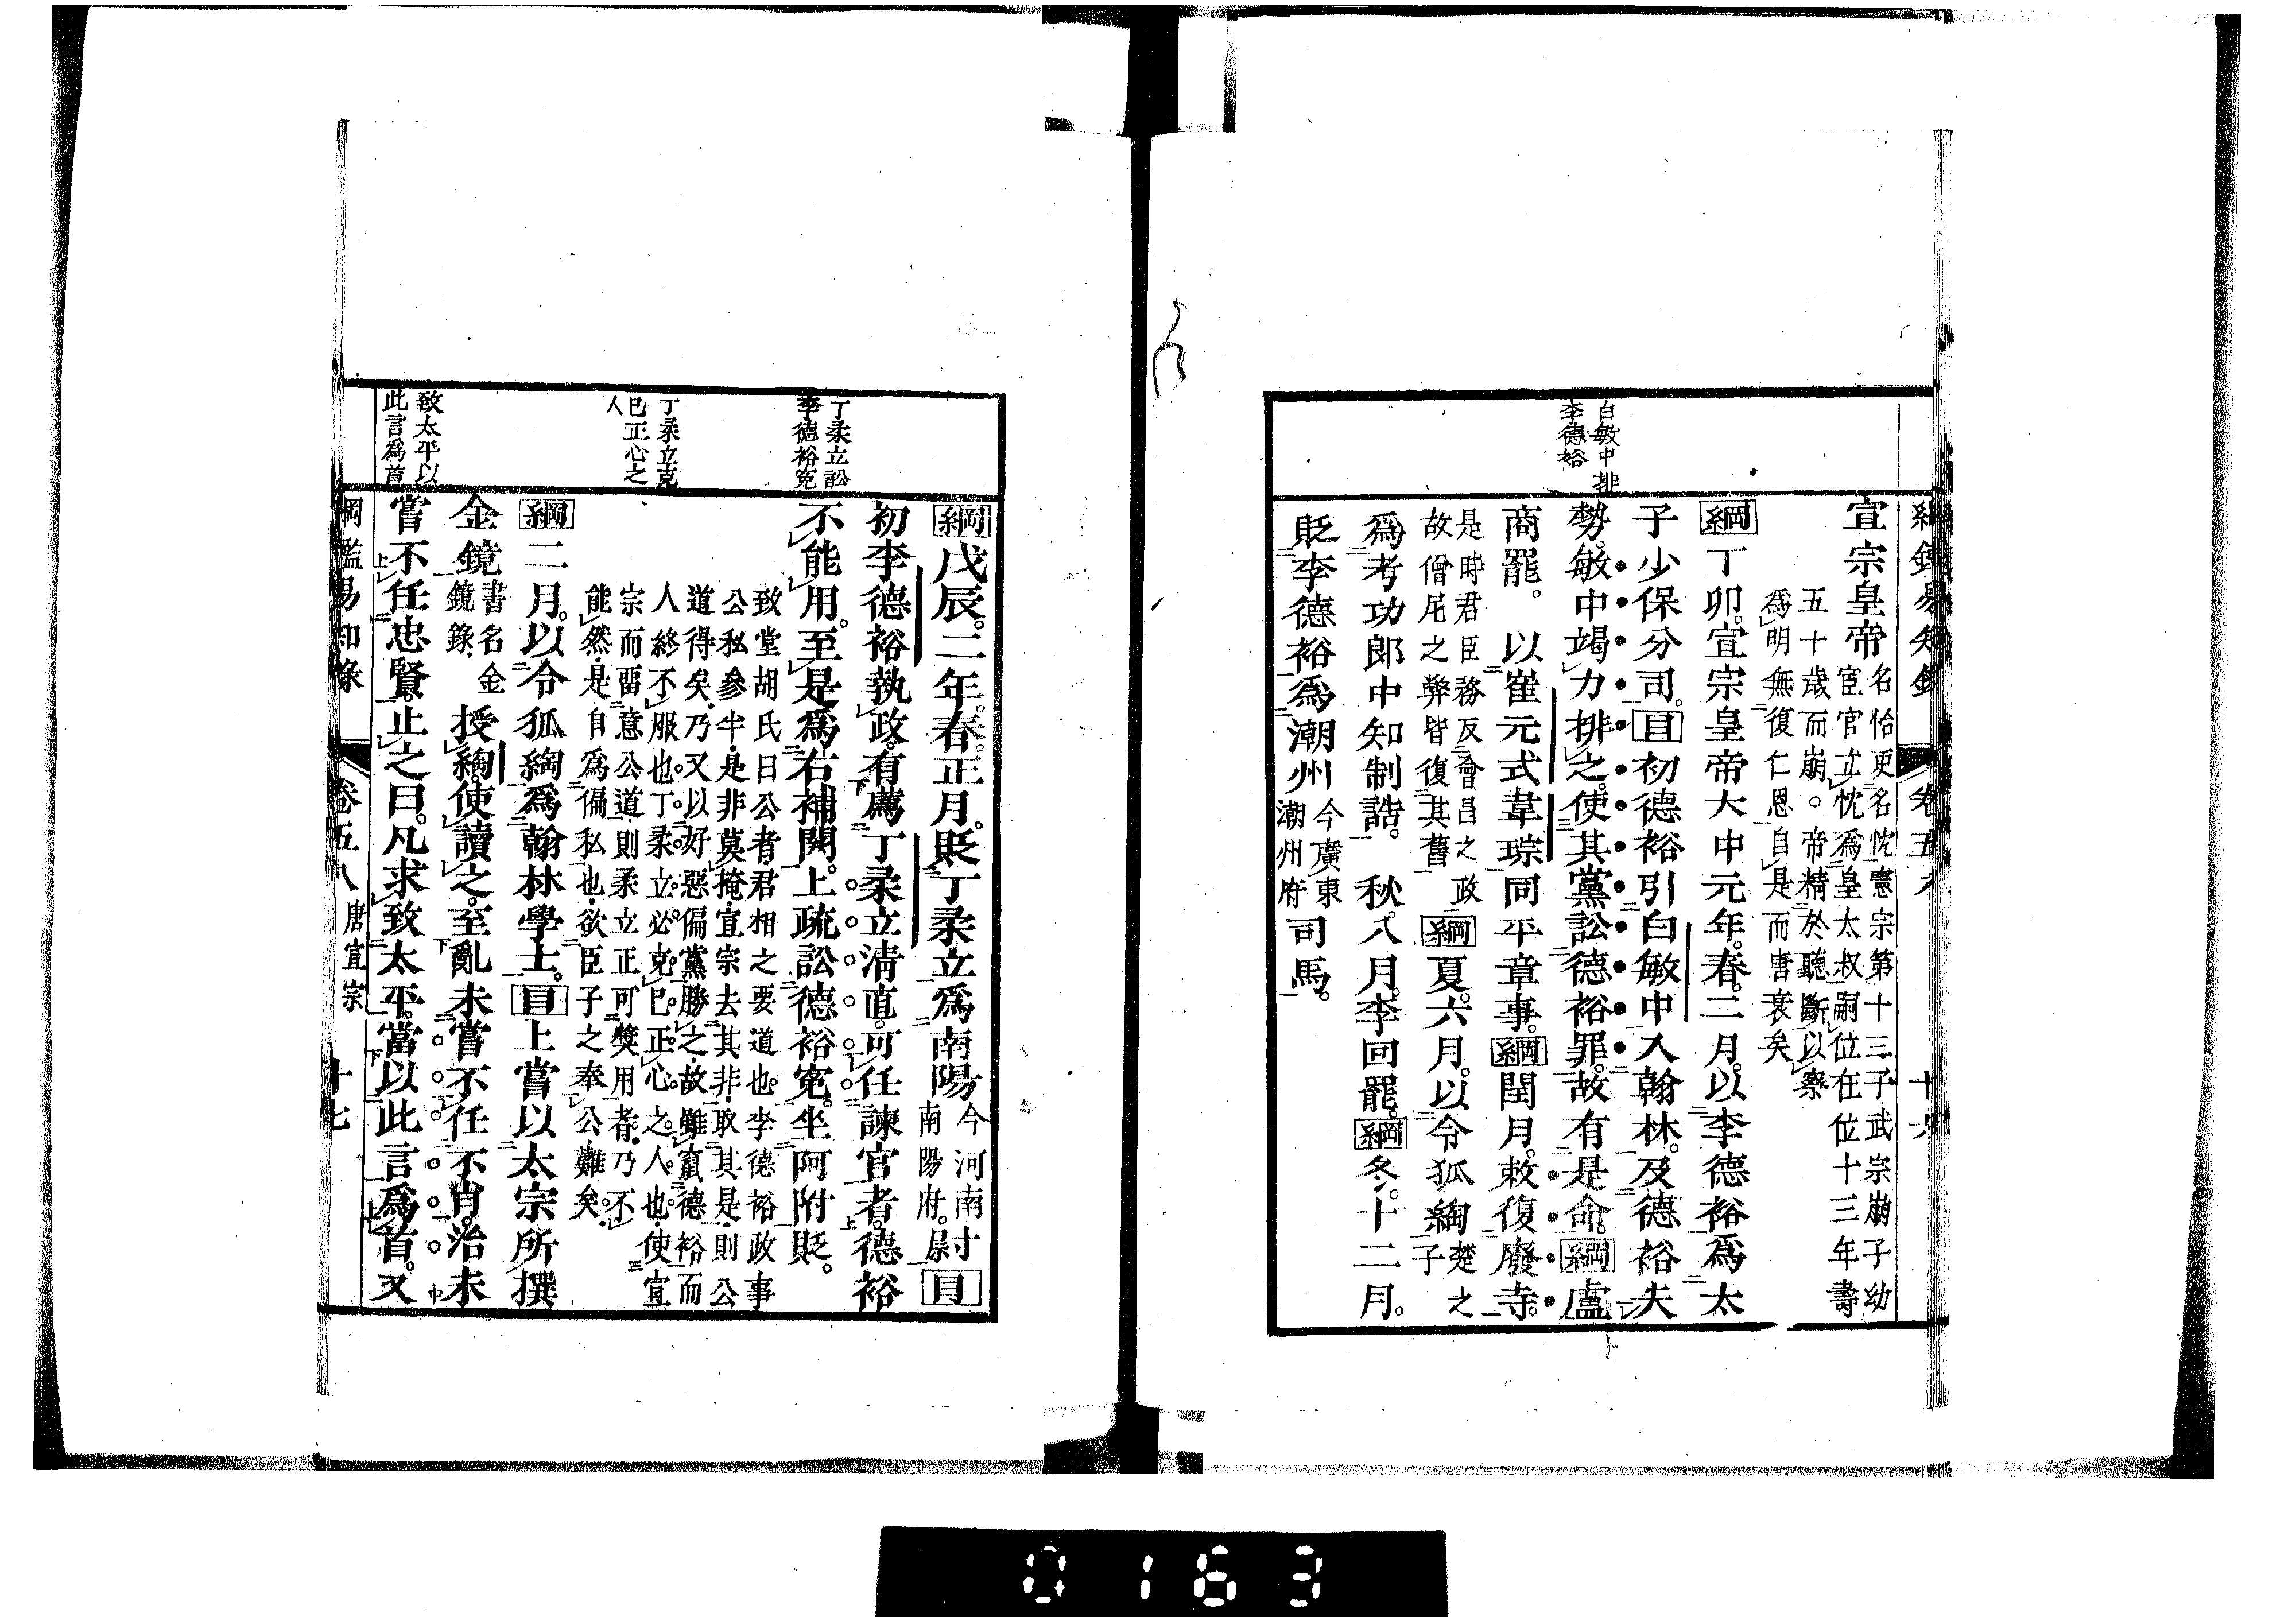 綱鑑易知錄 卷五八 十六
白敏中排
李德裕
宣宗皇帝
名怡更名忱憲宗第十三子武宗崩子幼
宦官立忱爲皇太叔嗣位在位十三年壽
五十歲而崩○帝精於聽斷以察
爲明無復仁恩自是而唐衰矣
綱丁卯宣宗皇帝大中元年春二月以李德裕爲太
子少保分司目初德裕引白敏中入翰林及德裕失
勢敏中竭力排之使其黨訟德裕罪故有是命綱盧
商罷。以崔元式韋琮同平章事綱閏月敕復廢寺
是時君臣務反會昌之政
故僧尼之弊皆復其舊
綱夏六月以令狐綯
楚之
子
爲考功郎中知制誥。秋八月李回罷綱冬十二月。
貶李德裕爲潮州
今廣東
潮州府
司馬。
丁柔立訟
李德裕冤
丁柔立克
已正心之
人
致太平以
此言爲首
綱戊辰二年春正月貶丁柔立爲南陽
今河南
南陽府
尉目
初李德裕執政有薦丁柔立清直可任諫官者德裕
不能用至是爲右補闕上疏訟德裕冤坐阿附貶。
致堂胡氏曰公者君相之要道也李德裕政事
公私參半是非莫掩宣宗去其非取其是則公
道得矣乃又以好惡偏黨勝之故雖竄德裕而
人終不服也丁柔立必克已正心之人也使宣
宗而畱意公道則柔立正可獎用者乃不
能然是自爲偏私也欲臣子之奉公難矣
綱二月以令狐綯爲翰林學士目上嘗以太宗所撰
金鏡
書名金
鏡錄
授綯使讀之至亂未嘗不任不肖治未
嘗不任忠賢止之曰凡求致太平當以此言爲首又
綱鑑易知錄 卷五八 唐宣宗 十七
0163